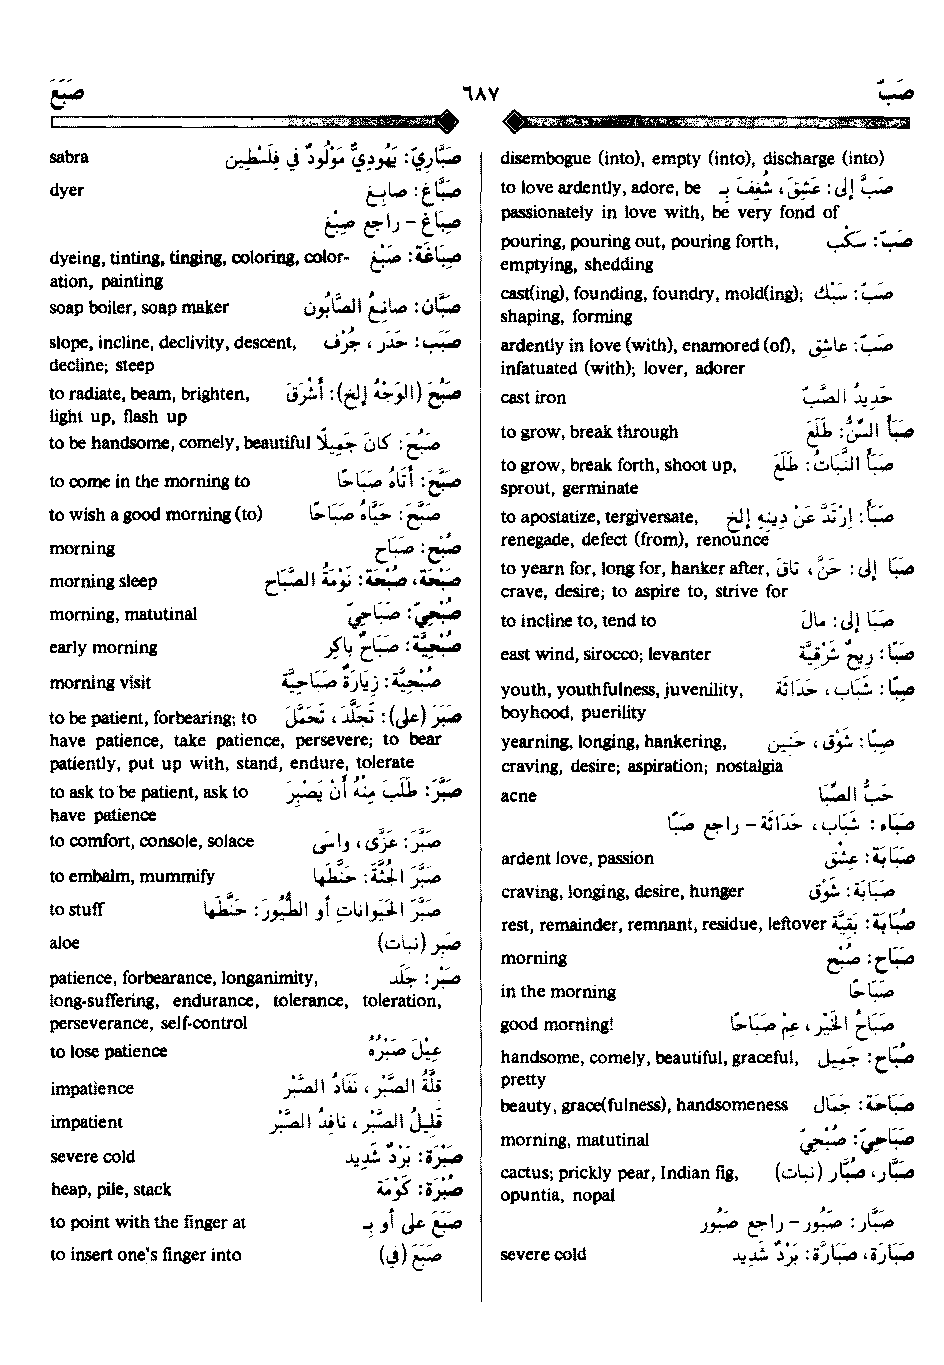 صَبَّ
٦٨٧
صَبَعَ
disembogue (into), empty (into), discharge (into)
صَبَّ إلى: عَشِقَ، شُغِفَ بـ to love ardently, adore, be
passionately in love with, be very fond of
صَبّ: سَكْب pouring, pouring out, pouring forth,
emptying, shedding
صَبّ: سَبْك cast(ing), founding, foundry, mold(ing);
shaping, forming
صَبّ: عاشِق ardently in love (with), enamored (of),
infatuated (with); lover, adorer
حَدِيدُ الصَّبّ cast iron
صَبَأَ السِّنُّ: طَلَعَ to grow, break through
صَبَأَ النَّبَاتُ: طَلَعَ to grow, break forth, shoot up,
sprout, germinate
صَبَأَ: اِرْتَدَّ عَنْ دِينِهِ إلخ to apostatize, tergiversate,
renegade, defect (from), renounce
صَبَا إلى: حَنَّ، تَاقَ to yearn for, long for, hanker after,
crave, desire; to aspire to, strive for
صَبَا إلى: مَالَ to incline to, tend to
صَبًا: رِيحٌ شَرْقِيَّة east wind, sirocco; levanter
صِبًا: شَبَاب، حَدَاثَة youth, youthfulness, juvenility,
boyhood, puerility
صِبًا: شَوْق، حَنِين yearning, longing, hankering,
craving, desire; aspiration; nostalgia
حَبُّ الصِّبَا acne
صَبَاء: شَبَاب، حَدَاثَة - راجع صِبًا
صَبَابَة: عِشْق ardent love, passion
صَبَابَة: شَوْق craving, longing, desire, hunger
صُبَابَة: بَقِيَّة rest, remainder, remnant, residue, leftover
صَبَاح: صُبْح morning
صَبَاحًا in the morning
صَبَاحُ الخَيْر، عِمْ صَبَاحًا good morning!
صُبَاح: جَمِيل handsome, comely, beautiful, graceful,
pretty
صَبَاحَة: جَمَال beauty, grace(fulness), handsomeness
صَبَاحِيّ: صُبْحِيّ morning, matutinal
صَبَّار، صُبَّار (نبات) cactus; prickly pear, Indian fig,
opuntia, nopal
صَبَّار: صَبُور - راجع صَبُور
صَبَارَة، صَبَارَّة: بَرْدٌ شَدِيد severe cold
صَبَّارِيّ: يَهُودِيٌّ مَوْلُودٌ في فِلَسْطِين sabra
صَبَّاغ: صابِغ dyer
صِبَاغ - راجع صِبْغ
صِبَاغَة: صَبْغ dyeing, tinting, tinging, coloring, color-
ation, painting
صَبَّان: صانِعُ الصَّابُون soap boiler, soap maker
صَبَب: حَدَر، جُرْف slope, incline, declivity, descent,
decline; steep
صَبُحَ (الوَجْهُ إلخ): أَشْرَقَ to radiate, beam, brighten,
light up, flash up
صَبُحَ: كَانَ جَمِيلاً to be handsome, comely, beautiful
صَبَّحَ: أتَاهُ صَبَاحًا to come in the morning to
صَبَّحَ: حَيَّاهُ صَبَاحًا to wish a good morning (to)
صُبْح: صَبَاح morning
صَبْحَة، صُبْحَة: نَوْمَةُ الصَّبَاح morning sleep
صُبْحِيّ: صَبَاحِيّ morning, matutinal
صُبْحِيَّة: صَبَاحٌ باكِر early morning
صُبْحِيَّة: زِيَارَةٌ صَبَاحِيَّة morning visit
صَبَرَ (على): تَجَلَّدَ، تَحَمَّلَ to be patient, forbearing; to
have patience, take patience, persevere; to bear
patiently, put up with, stand, endure, tolerate
صَبَّرَ: طَلَبَ مِنْهُ أنْ يَصْبِرَ to ask to be patient, ask to
have patience
صَبَّرَ: عَزَّى، واسَى to comfort, console, solace
صَبَّرَ الجُثَّةَ: حَنَّطَها to embalm, mummify
صَبَّرَ الحَيَواناتِ أو الطُّيُورَ: حَنَّطَها to stuff
صَبِر (نبات) aloe
صَبْر: جَلَد patience, forbearance, longanimity,
long-suffering, endurance, tolerance, toleration,
perseverance, self-control
عِيلَ صَبْرُهُ to lose patience
قِلَّةُ الصَّبْر، نَفَادُ الصَّبْر impatience
قَلِيلُ الصَّبْر، نافِدُ الصَّبْر impatient
صَبْرَة: بَرْدٌ شَدِيد severe cold
صُبْرَة: كَوْمَة heap, pile, stack
صَبَعَ على أو بـِ to point with the finger at
صَبَعَ (في) to insert one's finger into